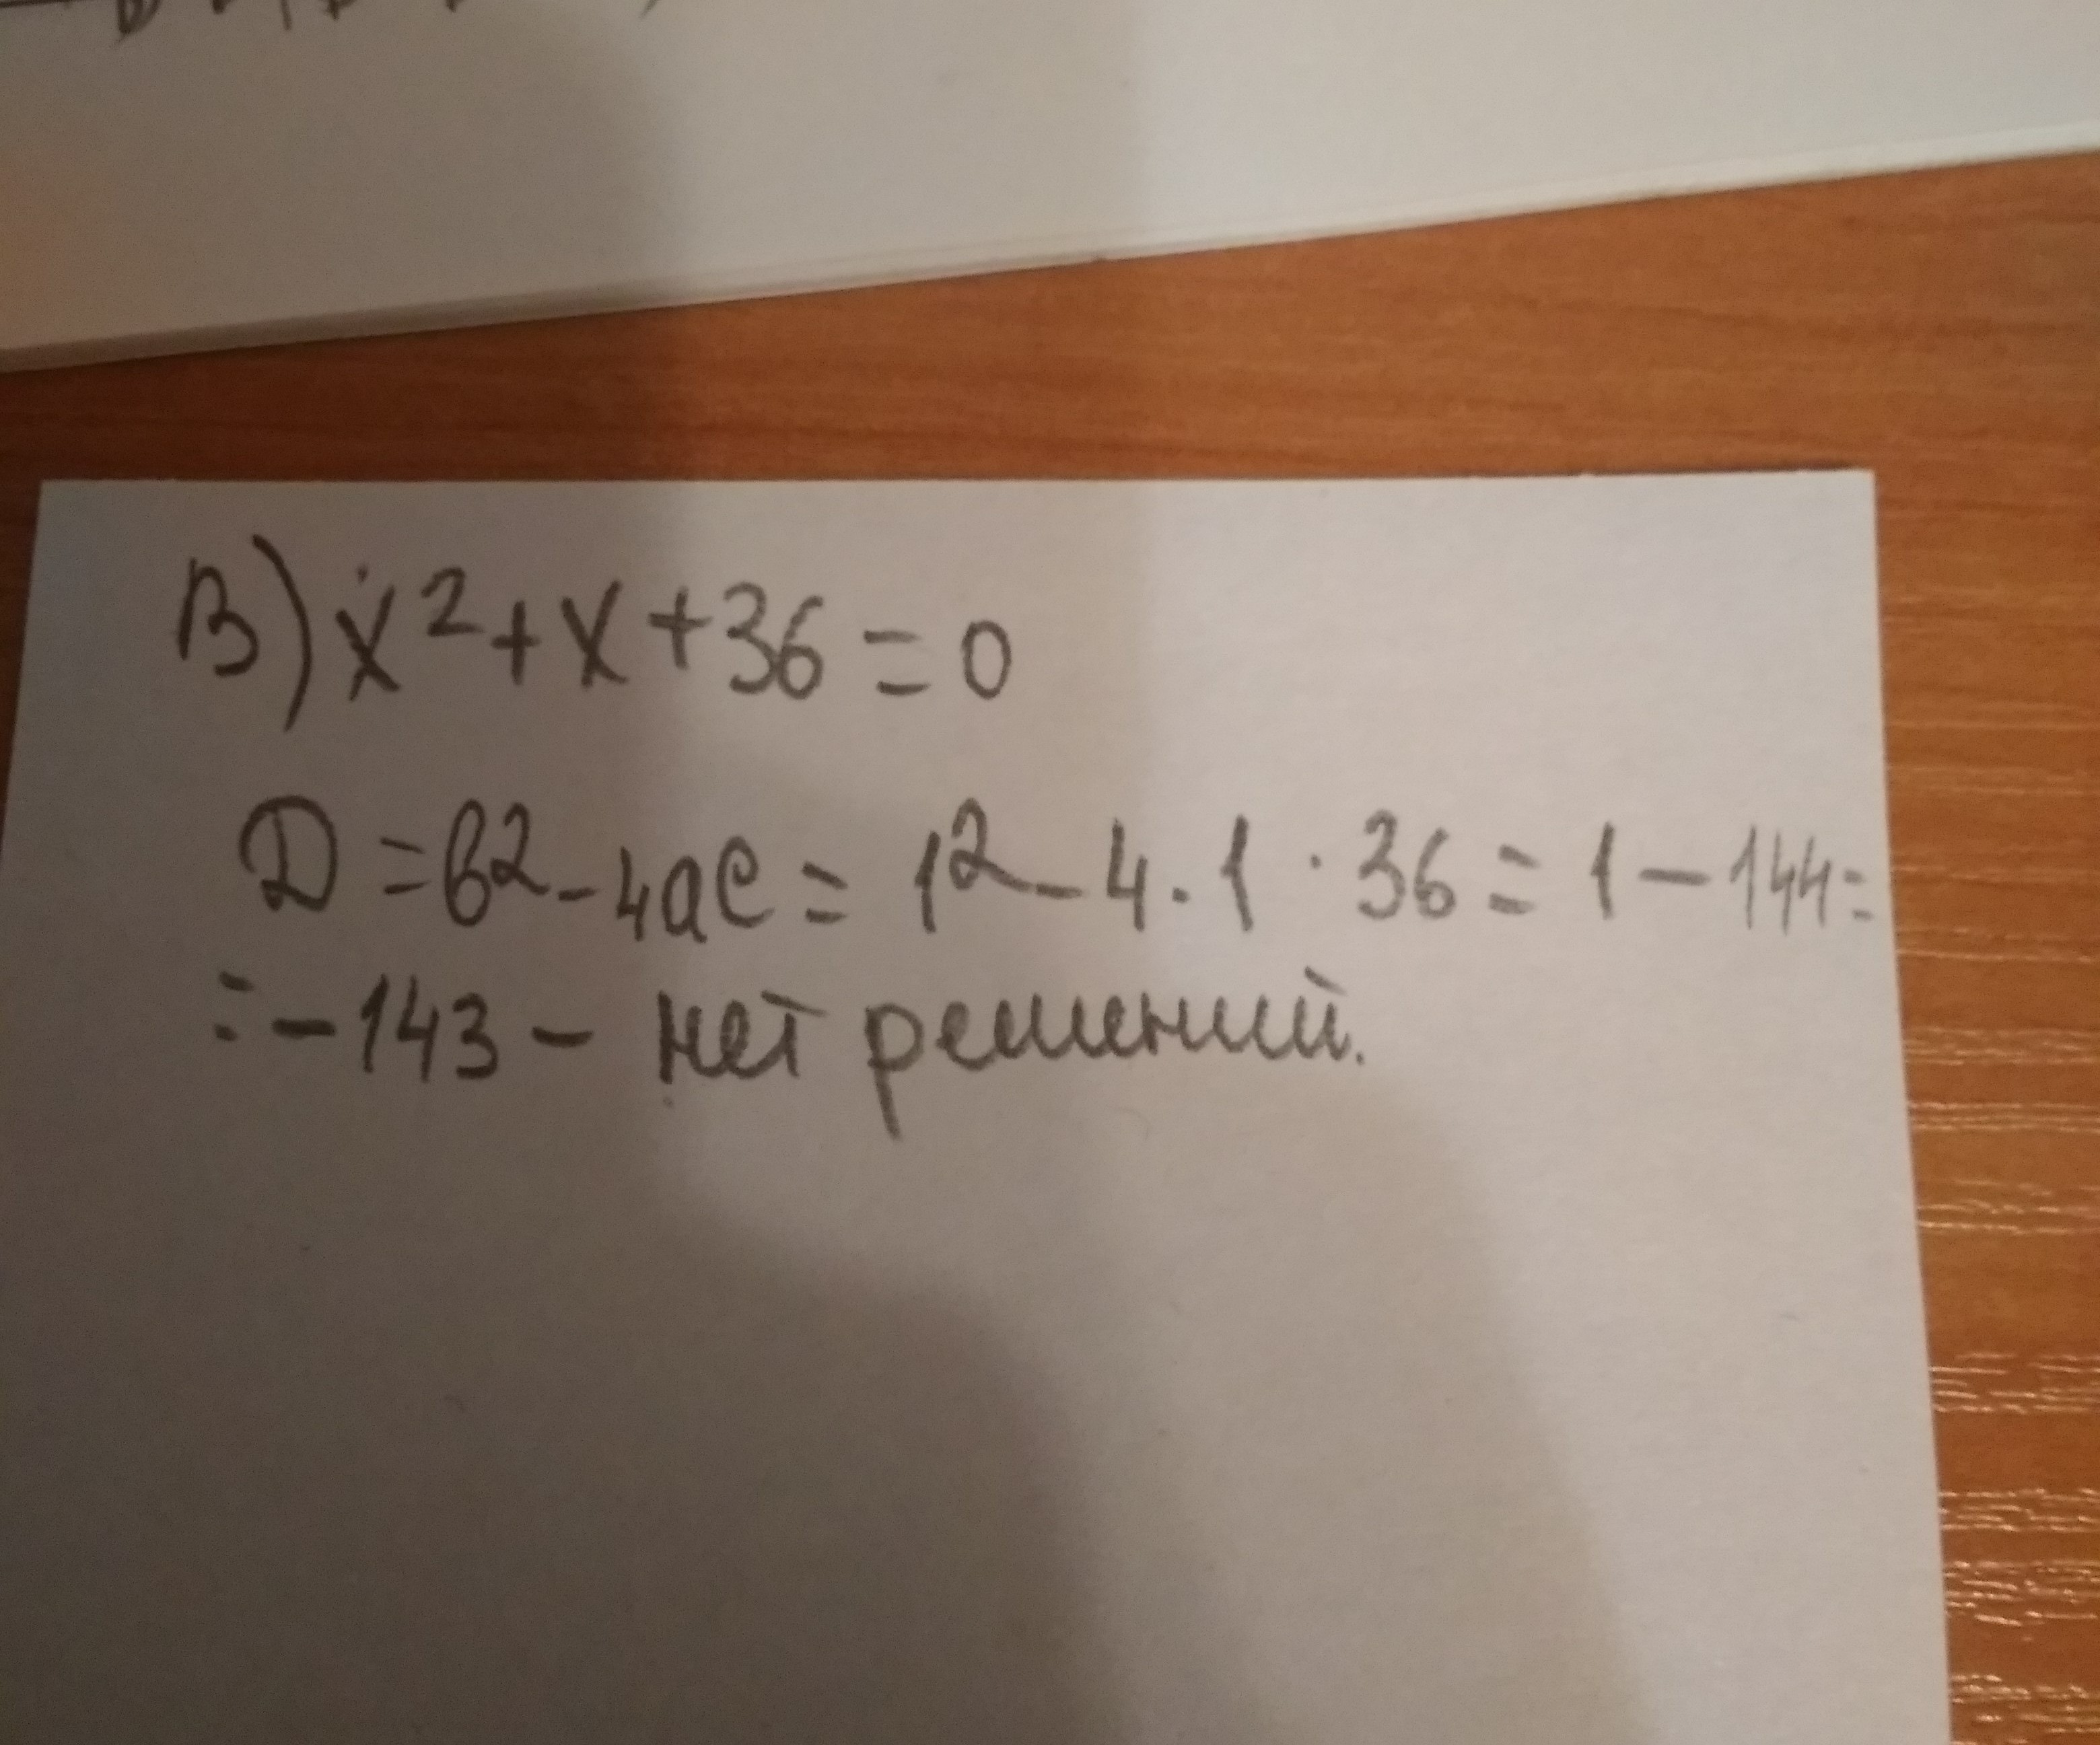 В) x² + x + 36 = 0
D = b² - 4ac = 1² - 4 · 1 · 36 = 1 - 144 =
= - 143 - нет решений.